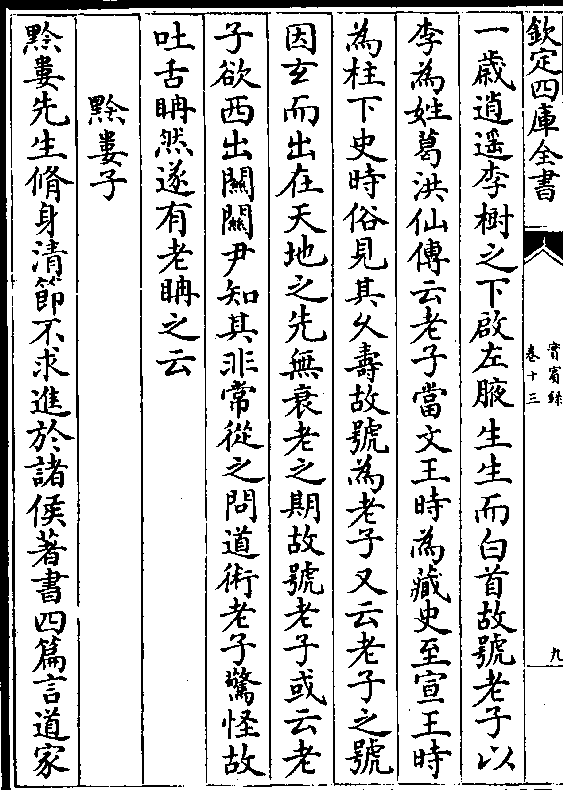 欽定四庫全書
實賓録
卷十三
九
一歲逍遥李樹之下啟左腋生生而白首故號老子以
李為姓葛洪仙傳云老子當文王時為藏史至宣王時
為柱下史時俗見其久壽故號為老子又云老子之號
因玄而出在天地之先無衰老之期故號老子或云老
子欲西出關關尹知其非常從之問道術老子驚怪故
吐舌聃然遂有老聃之云
黔婁子
黔婁先生脩身清節不求進於諸侯著書四篇言道家